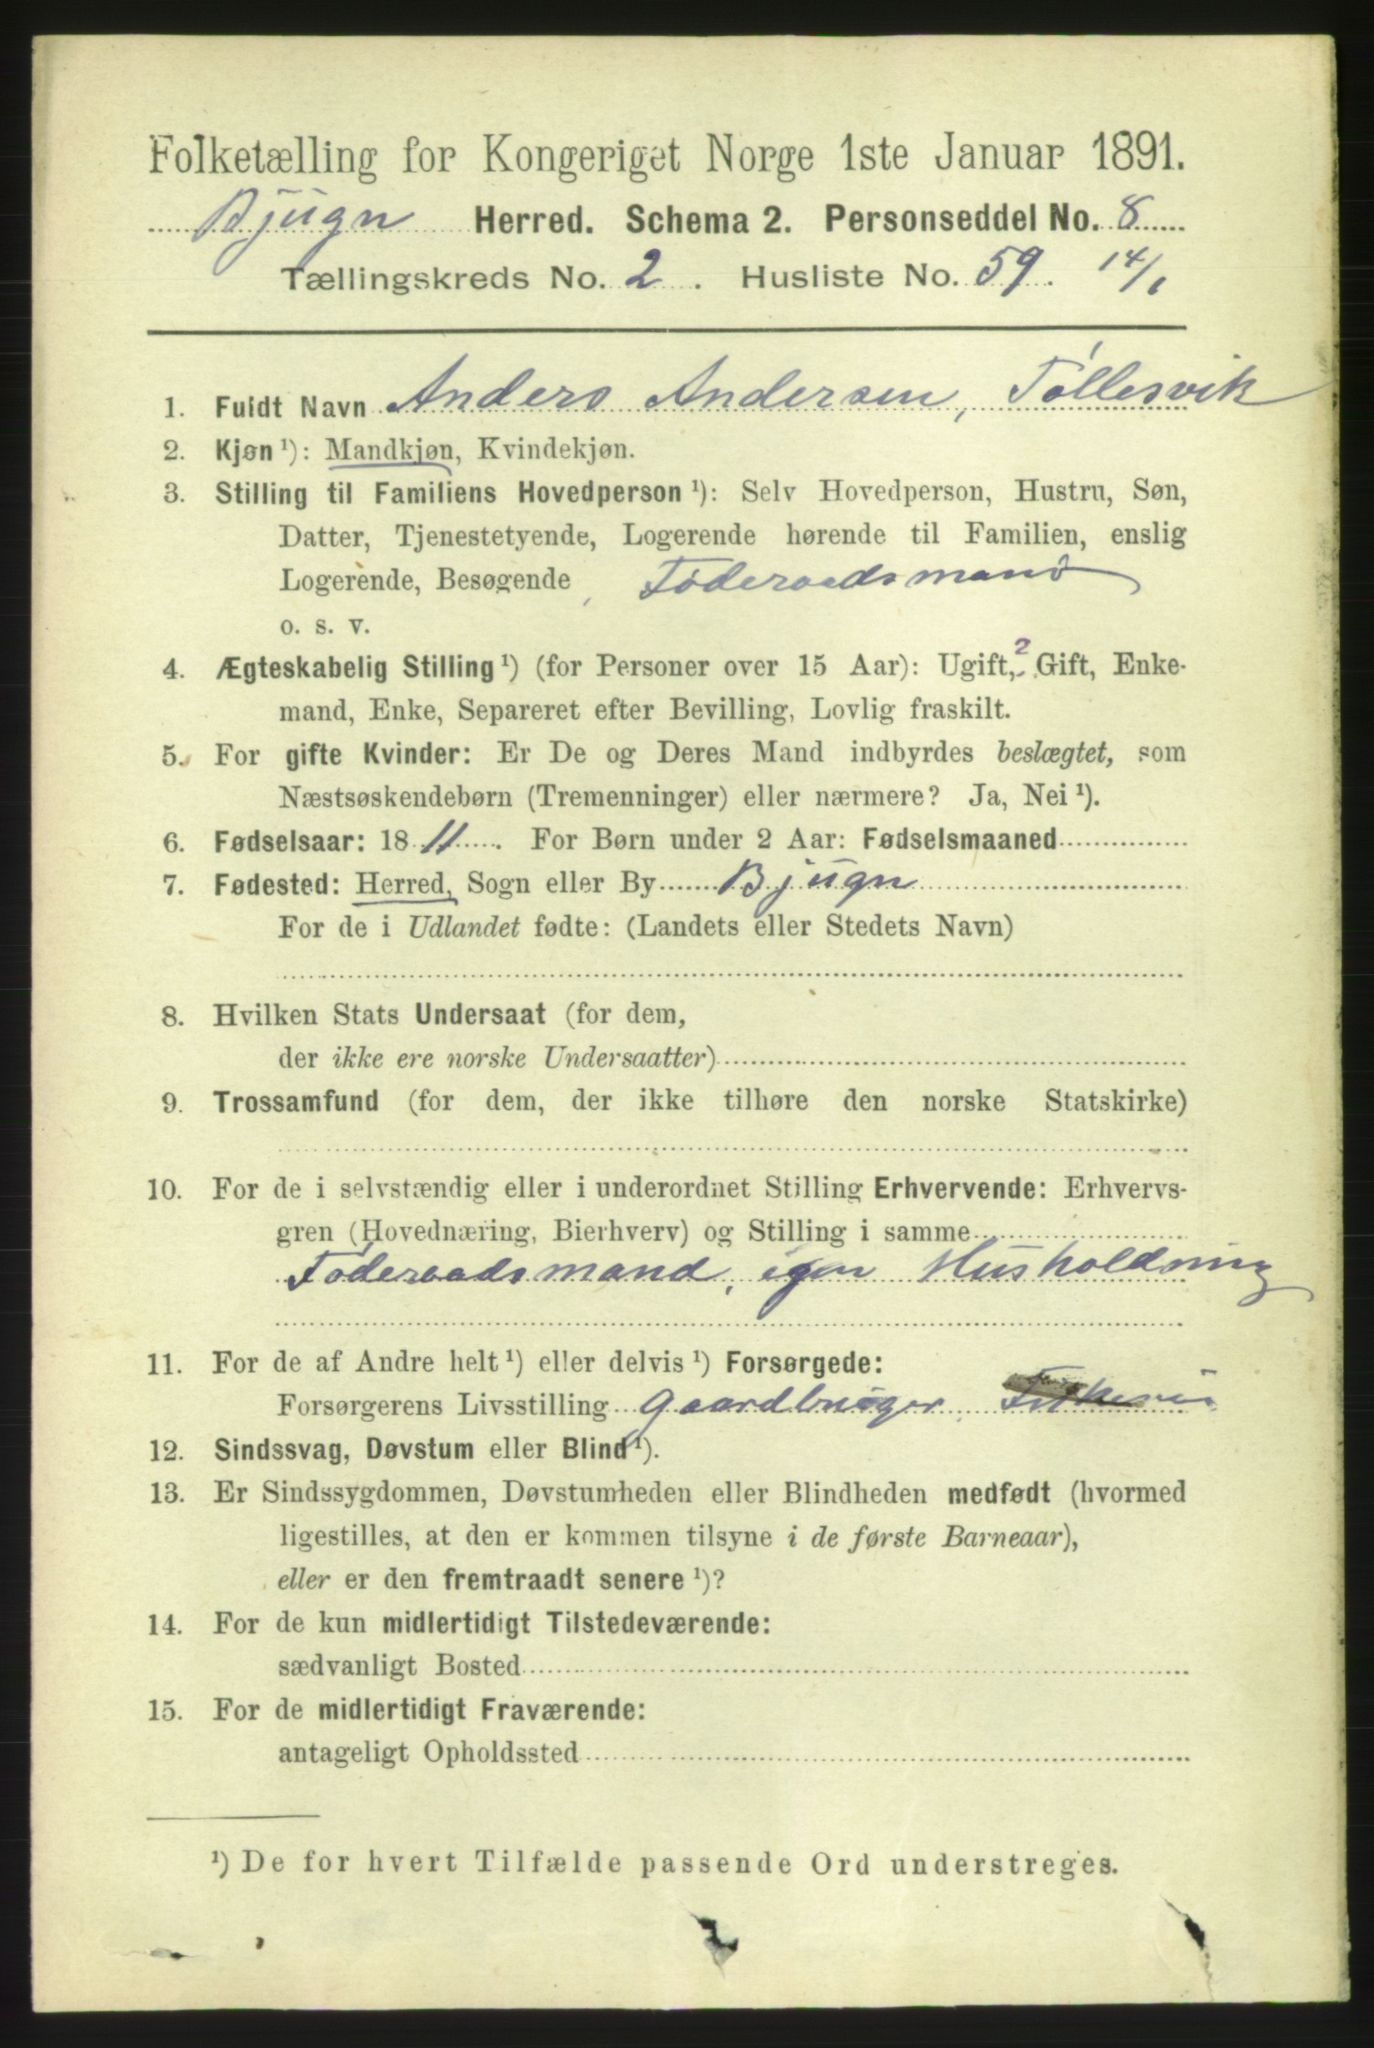 Folketælling for Kongeriget Norge 1ste Januar 1891.
Bjugn Herred. Schema 2. Personseddel No. 8
Tællingskreds No. 2. Husliste No. 59. 14/1
1. Fuldt Navn Anders Andersen, Tøllesvik
2. Kjøn ¹): Mandkjøn, Kvindekjøn.
3. Stilling til Familiens Hovedperson ¹): Selv Hovedperson, Hustru, Søn,
Datter, Tjenestetyende, Logerende hørende til Familien, enslig
Logerende, Besøgende Føderaadsmand
o. s. v.
4. Ægteskabelig Stilling ¹) (for Personer over 15 Aar): Ugift, ? Gift, Enke-
mand, Enke, Separeret efter Bevilling, Lovlig fraskilt.
5. For gifte Kvinder: Er De og Deres Mand indbyrdes beslægtet, som
Næstsøskendebørn (Tremenninger) eller nærmere? Ja, Nei ¹).
6. Fødselsaar: 1811. For Børn under 2 Aar: Fødselsmaaned
7. Fødested: Herred, Sogn eller By Bjugn
For de i Udlandet fødte: (Landets eller Stedets Navn)
8. Hvilken Stats Undersaat (for dem,
der ikke ere norske Undersaatter)
9. Trossamfund (for dem, der ikke tilhøre den norske Statskirke)
10. For de i selvstændig eller i underordnet Stilling Erhvervende: Erhvervs-
gren (Hovednæring, Bierhverv) og Stilling i samme
Føderaadsmand, egen Husholdning
11. For de af Andre helt ¹) eller delvis ¹) Forsørgede:
Forsørgerens Livsstilling Gaardbruger,
12. Sindssvag, Døvstum eller Blind ¹).
13. Er Sindssygdommen, Døvstumheden eller Blindheden medfødt (hvormed
ligestilles, at den er kommen tilsyne i de første Barneaar),
eller er den fremtraadt senere ¹)?
14. For de kun midlertidigt Tilstedeværende:
sædvanligt Bosted
15. For de midlertidigt Fraværende:
antageligt Opholdssted
¹) De for hvert Tilfælde passende Ord understreges.